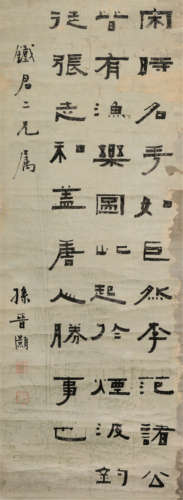 宋時名手如巨然李范諸公
皆有漁樂圖此起於煙波釣
徒張志和蓋唐人勝事也
鐵君二兄屬
孫晉灝